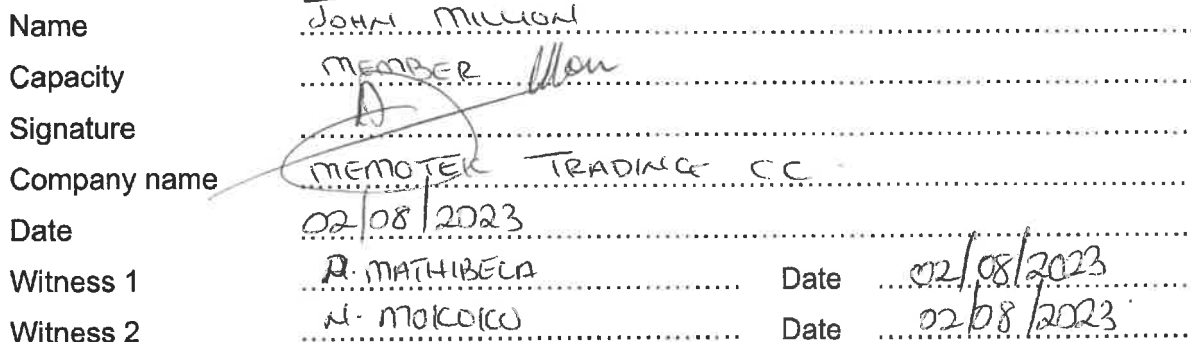 Name JOHN MILLION
Capacity MEMBER
Signature
Company name MEMOTEK TRADING CC
Date 02/08/2023
Witness 1 D. MATHIBELA Date 02/08/2023
Witness 2 N. MOKOKO Date 02/08/2023